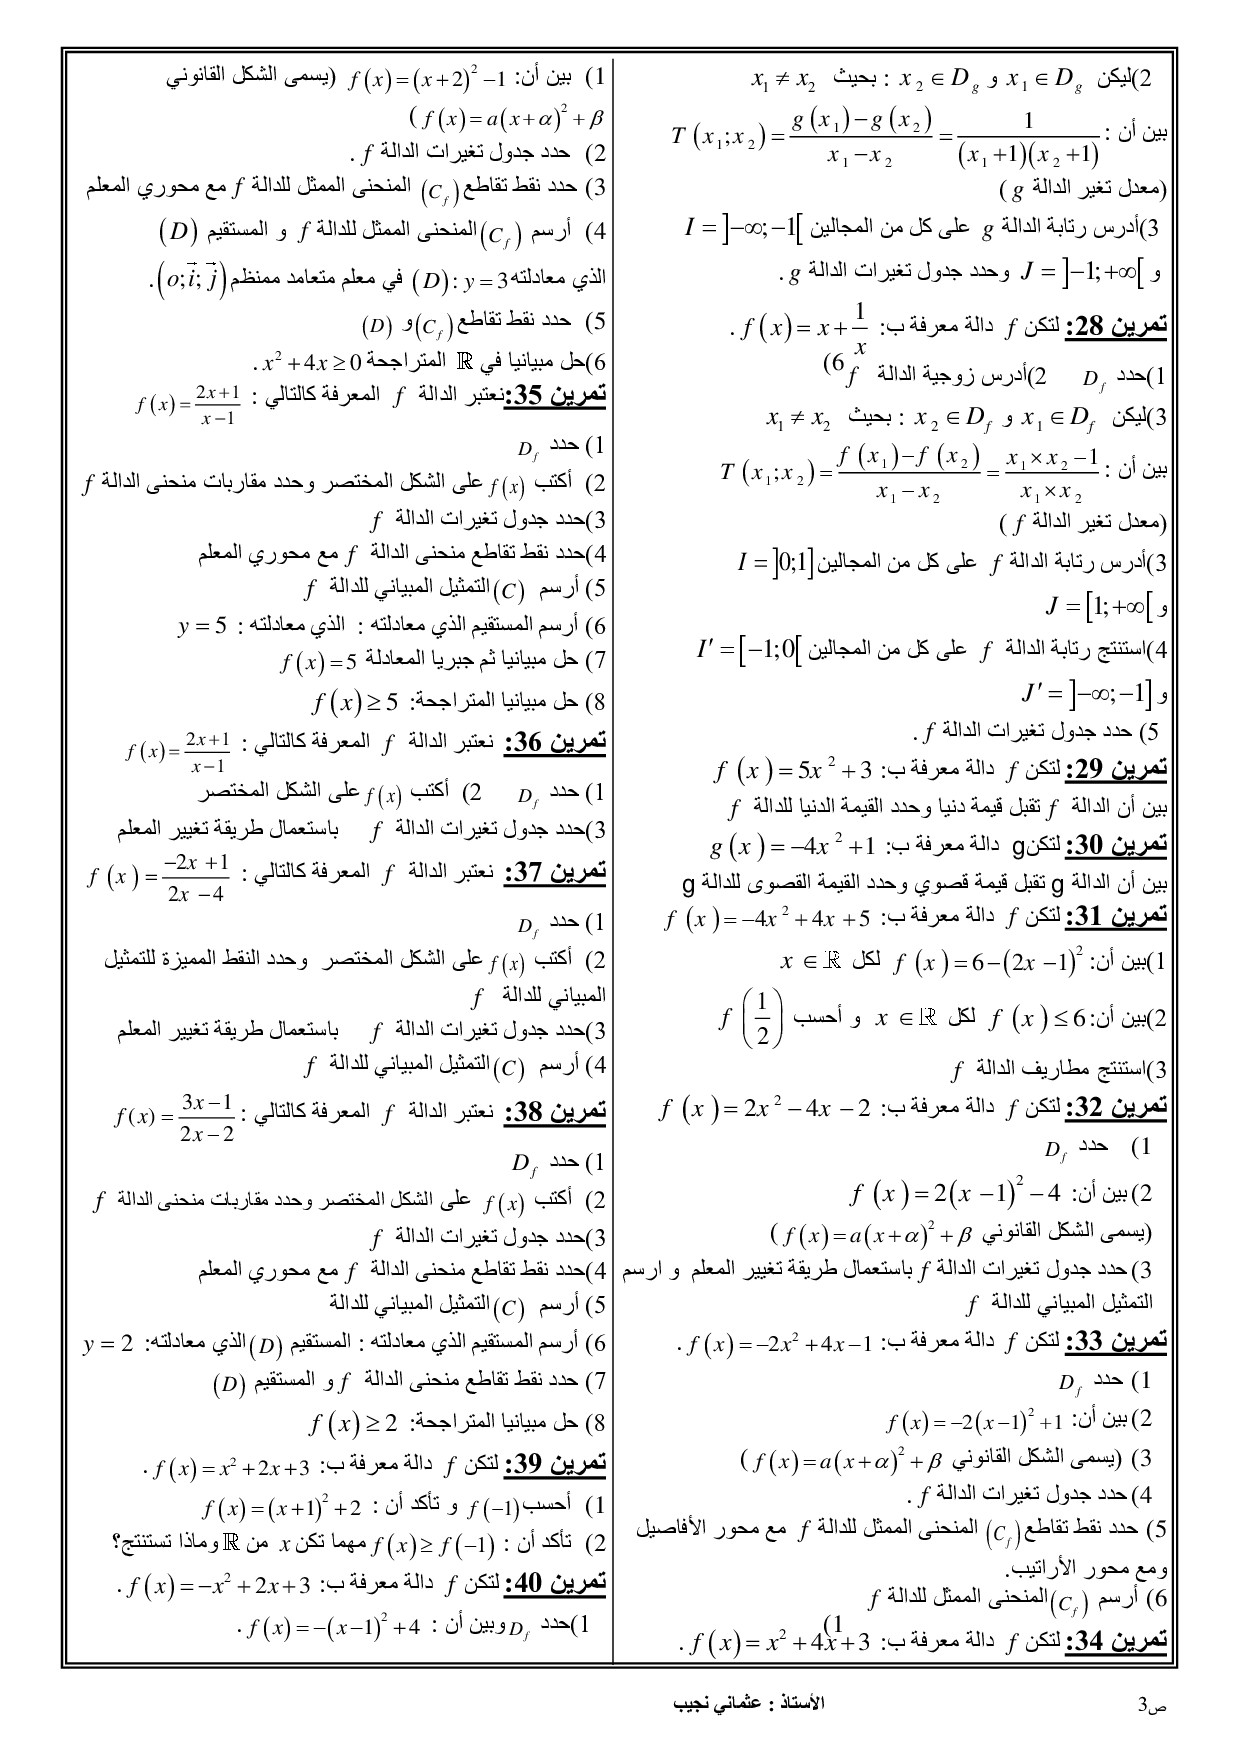 2)ليكن x₁ ∈ D_g و x₂ ∈ D_g : بحيث x₁ ≠ x₂
بين أن : T(x₁;x₂) = (g(x₁)−g(x₂))/(x₁−x₂) = 1/((x₁+1)(x₂+1))
(معدل تغير الدالة g )
3)أدرس رتابة الدالة g على كل من المجالين I = ]−∞;−1[
و J = ]−1;+∞[ وحدد جدول تغيرات الدالة g .
تمرين 28: لتكن f دالة معرفة ب: f(x) = x + 1/x .
1)حدد D_f 2)أدرس زوجية الدالة f 6)
3)ليكن x₁ ∈ D_f و x₂ ∈ D_f : بحيث x₁ ≠ x₂
بين أن : T(x₁;x₂) = (f(x₁)−f(x₂))/(x₁−x₂) = (x₁×x₂−1)/(x₁×x₂)
(معدل تغير الدالة f )
3)أدرس رتابة الدالة f على كل من المجالين I = ]0;1]
و J = [1;+∞[
4)استنتج رتابة الدالة f على كل من المجالين I′ = [−1;0[
و J′ = ]−∞;−1]
5) حدد جدول تغيرات الدالة f .
تمرين 29: لتكن f دالة معرفة ب: f(x) = 5x² + 3
بين أن الدالة f تقبل قيمة دنيا وحدد القيمة الدنيا للدالة f
تمرين 30: لتكن g دالة معرفة ب: g(x) = −4x² + 1
بين أن الدالة g تقبل قيمة قصوي وحدد القيمة القصوى للدالة g
تمرين 31: لتكن f دالة معرفة ب: f(x) = −4x² + 4x + 5
1)بين أن: f(x) = 6 − (2x − 1)² لكل x ∈ ℝ
2)بين أن: f(x) ≤ 6 لكل x ∈ ℝ و أحسب f(1/2)
3)استنتج مطاريف الدالة f
تمرين 32: لتكن f دالة معرفة ب: f(x) = 2x² − 4x − 2
1) حدد D_f
2)بين أن: f(x) = 2(x − 1)² − 4
(يسمى الشكل القانوني f(x) = a(x+α)² + β )
3)حدد جدول تغيرات الدالة f باستعمال طريقة تغيير المعلم و ارسم
التمثيل المبياني للدالة f
تمرين 33: لتكن f دالة معرفة ب: f(x) = −2x² + 4x − 1 .
1) حدد D_f
2)بين أن: f(x) = −2(x−1)² + 1
3) (يسمى الشكل القانوني f(x) = a(x+α)² + β )
4)حدد جدول تغيرات الدالة f .
5) حدد نقط تقاطع (C_f) المنحنى الممثل للدالة f مع محور الأفاصيل
ومع محور الأراتيب.
6) أرسم (C_f) المنحنى الممثل للدالة f
تمرين 34: لتكن f دالة معرفة ب: f(x) = x² + 4x + 3 . 1)
1) بين أن: f(x) = (x+2)² − 1 (يسمى الشكل القانوني
f(x) = a(x+α)² + β )
2) حدد جدول تغيرات الدالة f .
3) حدد نقط تقاطع (C_f) المنحنى الممثل للدالة f مع محوري المعلم
4) أرسم (C_f) المنحنى الممثل للدالة f و المستقيم (D)
الذي معادلته (D): y = 3 في معلم متعامد ممنظم (o;i⃗;j⃗).
5) حدد نقط تقاطع (C_f) و (D)
6)حل مبيانيا في ℝ المتراجحة x² + 4x ≥ 0 .
تمرين 35:نعتبر الدالة f المعرفة كالتالي : f(x) = (2x+1)/(x−1)
1) حدد D_f
2) أكتب f(x) على الشكل المختصر وحدد مقاربات منحنى الدالة f
3)حدد جدول تغيرات الدالة f
4)حدد نقط تقاطع منحنى الدالة f مع محوري المعلم
5) أرسم (C) التمثيل المبياني للدالة f
6) أرسم المستقيم الذي معادلته : الذي معادلته : y = 5
7) حل مبيانيا ثم جبريا المعادلة f(x) = 5
8) حل مبيانيا المتراجحة: f(x) ≥ 5
تمرين 36: نعتبر الدالة f المعرفة كالتالي : f(x) = (2x+1)/(x−1)
1) حدد D_f 2) أكتب f(x) على الشكل المختصر
3)حدد جدول تغيرات الدالة f باستعمال طريقة تغيير المعلم
تمرين 37: نعتبر الدالة f المعرفة كالتالي : f(x) = (−2x+1)/(2x−4)
1) حدد D_f
2) أكتب f(x) على الشكل المختصر وحدد النقط المميزة للتمثيل
المبياني للدالة f
3)حدد جدول تغيرات الدالة f باستعمال طريقة تغيير المعلم
4) أرسم (C) التمثيل المبياني للدالة f
تمرين 38: نعتبر الدالة f المعرفة كالتالي : f(x) = (3x−1)/(2x−2)
1) حدد D_f
2) أكتب f(x) على الشكل المختصر وحدد مقاربات منحنى الدالة f
3)حدد جدول تغيرات الدالة f
4)حدد نقط تقاطع منحنى الدالة f مع محوري المعلم
5) أرسم (C) التمثيل المبياني للدالة
6) أرسم المستقيم الذي معادلته : المستقيم (D) الذي معادلته: y = 2
7) حدد نقط تقاطع منحنى الدالة f و المستقيم (D)
8) حل مبيانيا المتراجحة: f(x) ≥ 2
تمرين 39: لتكن f دالة معرفة ب: f(x) = x² + 2x + 3 .
1) أحسب f(−1) و تأكد أن : f(x) = (x+1)² + 2
2) تأكد أن : f(x) ≥ f(−1) مهما تكن x من ℝ وماذا تستنتج؟
تمرين 40: لتكن f دالة معرفة ب: f(x) = −x² + 2x + 3 .
1)حدد D_f وبين أن : f(x) = −(x−1)² + 4 .
الأستاذ : عثماني نجيب
ص3